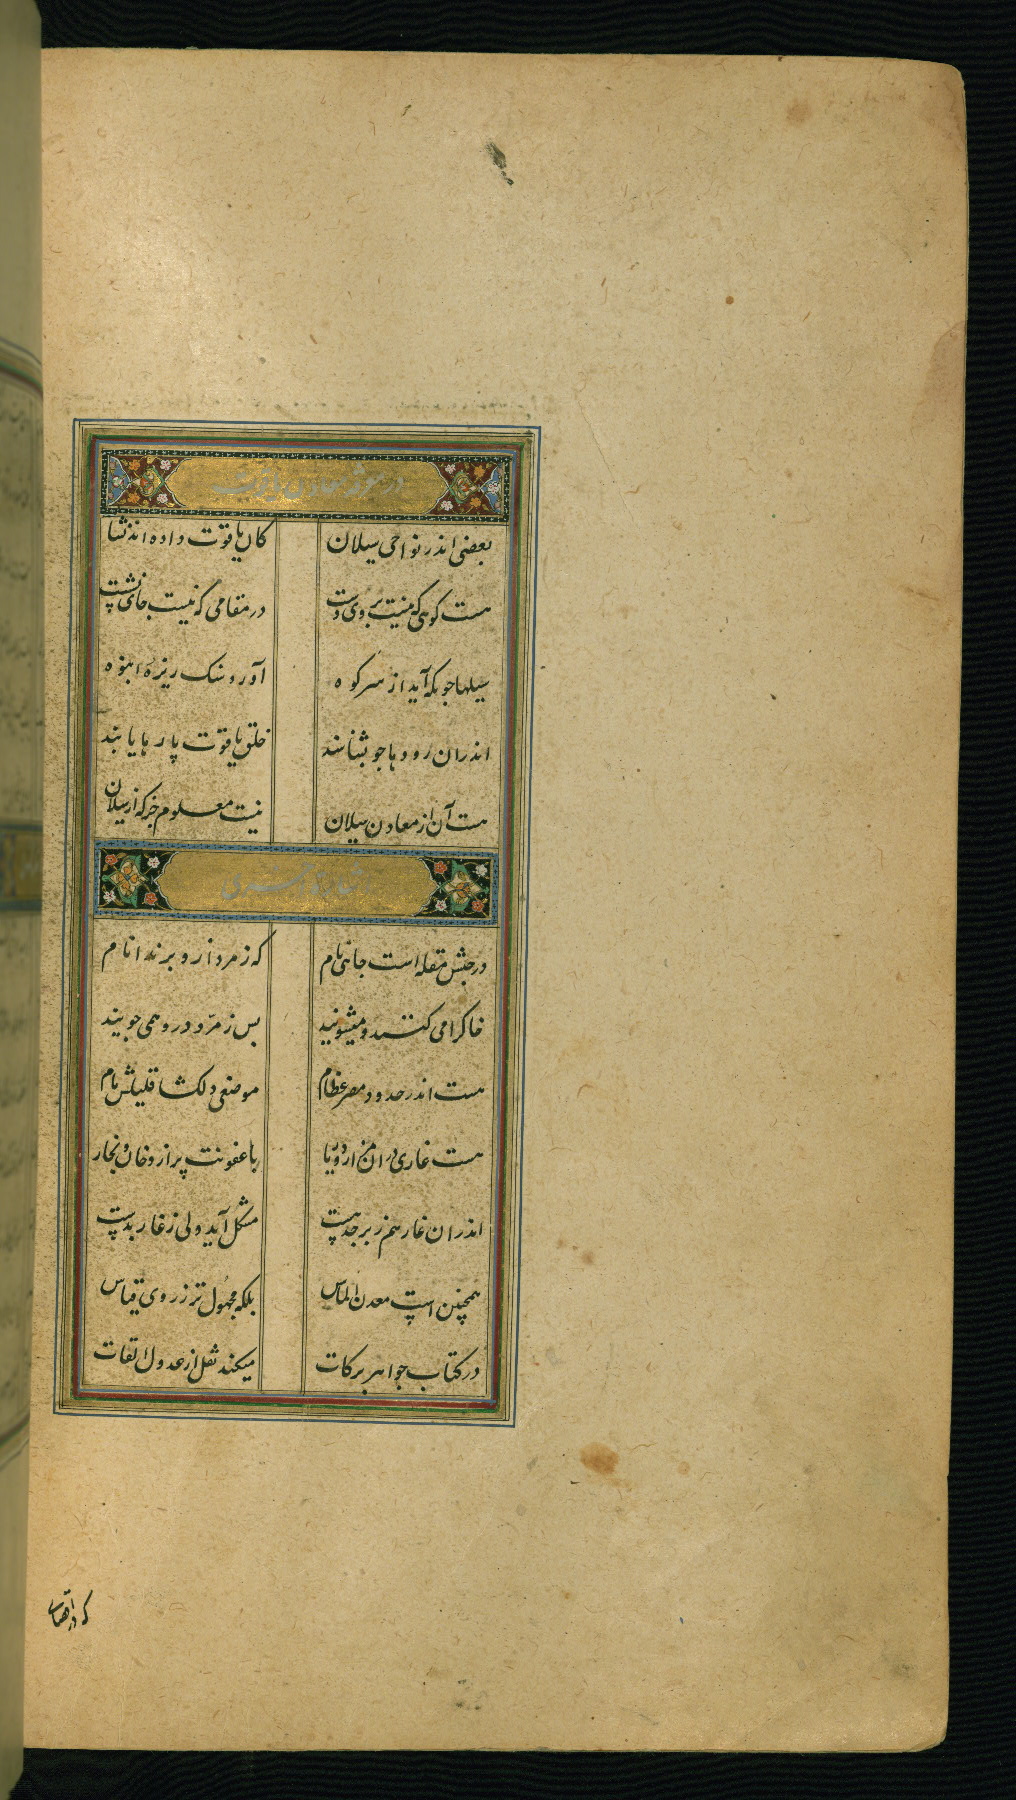 در معرفة معادن یاقوت
بعضی اندر نواحی سیلان کان یاقوت داده اند نشا
هست کوهی که نیست بروی دست در مقامی که نیست جای نشست
سیلها جونکه آید از سر کوه آورد سنک ریزه انبوه
اندران رودها جو بشناسند خلق یاقوت پارها یابند
هست آن از معادن سیلان نیست معلوم جز که از سیلان
در حبش مقله است جائی نام که زمرد ازو برند انام
خاکرا می کنند و میشویند بس زمرّد درو همی جویند
هست اندر حدود مصر عظام موضعی دلکشا قلیاش نام
هست غاری دران از دریا با عفونت پر از دخان و بخار
اندران غار هم زبرجد هست مشکل آید ولی ز غار بدست
همچنین است معدن الماس بلکه مجهول تر ز روی قیاس
در کتاب جواهر برکات میکند نقل از عدول ثقات
که در